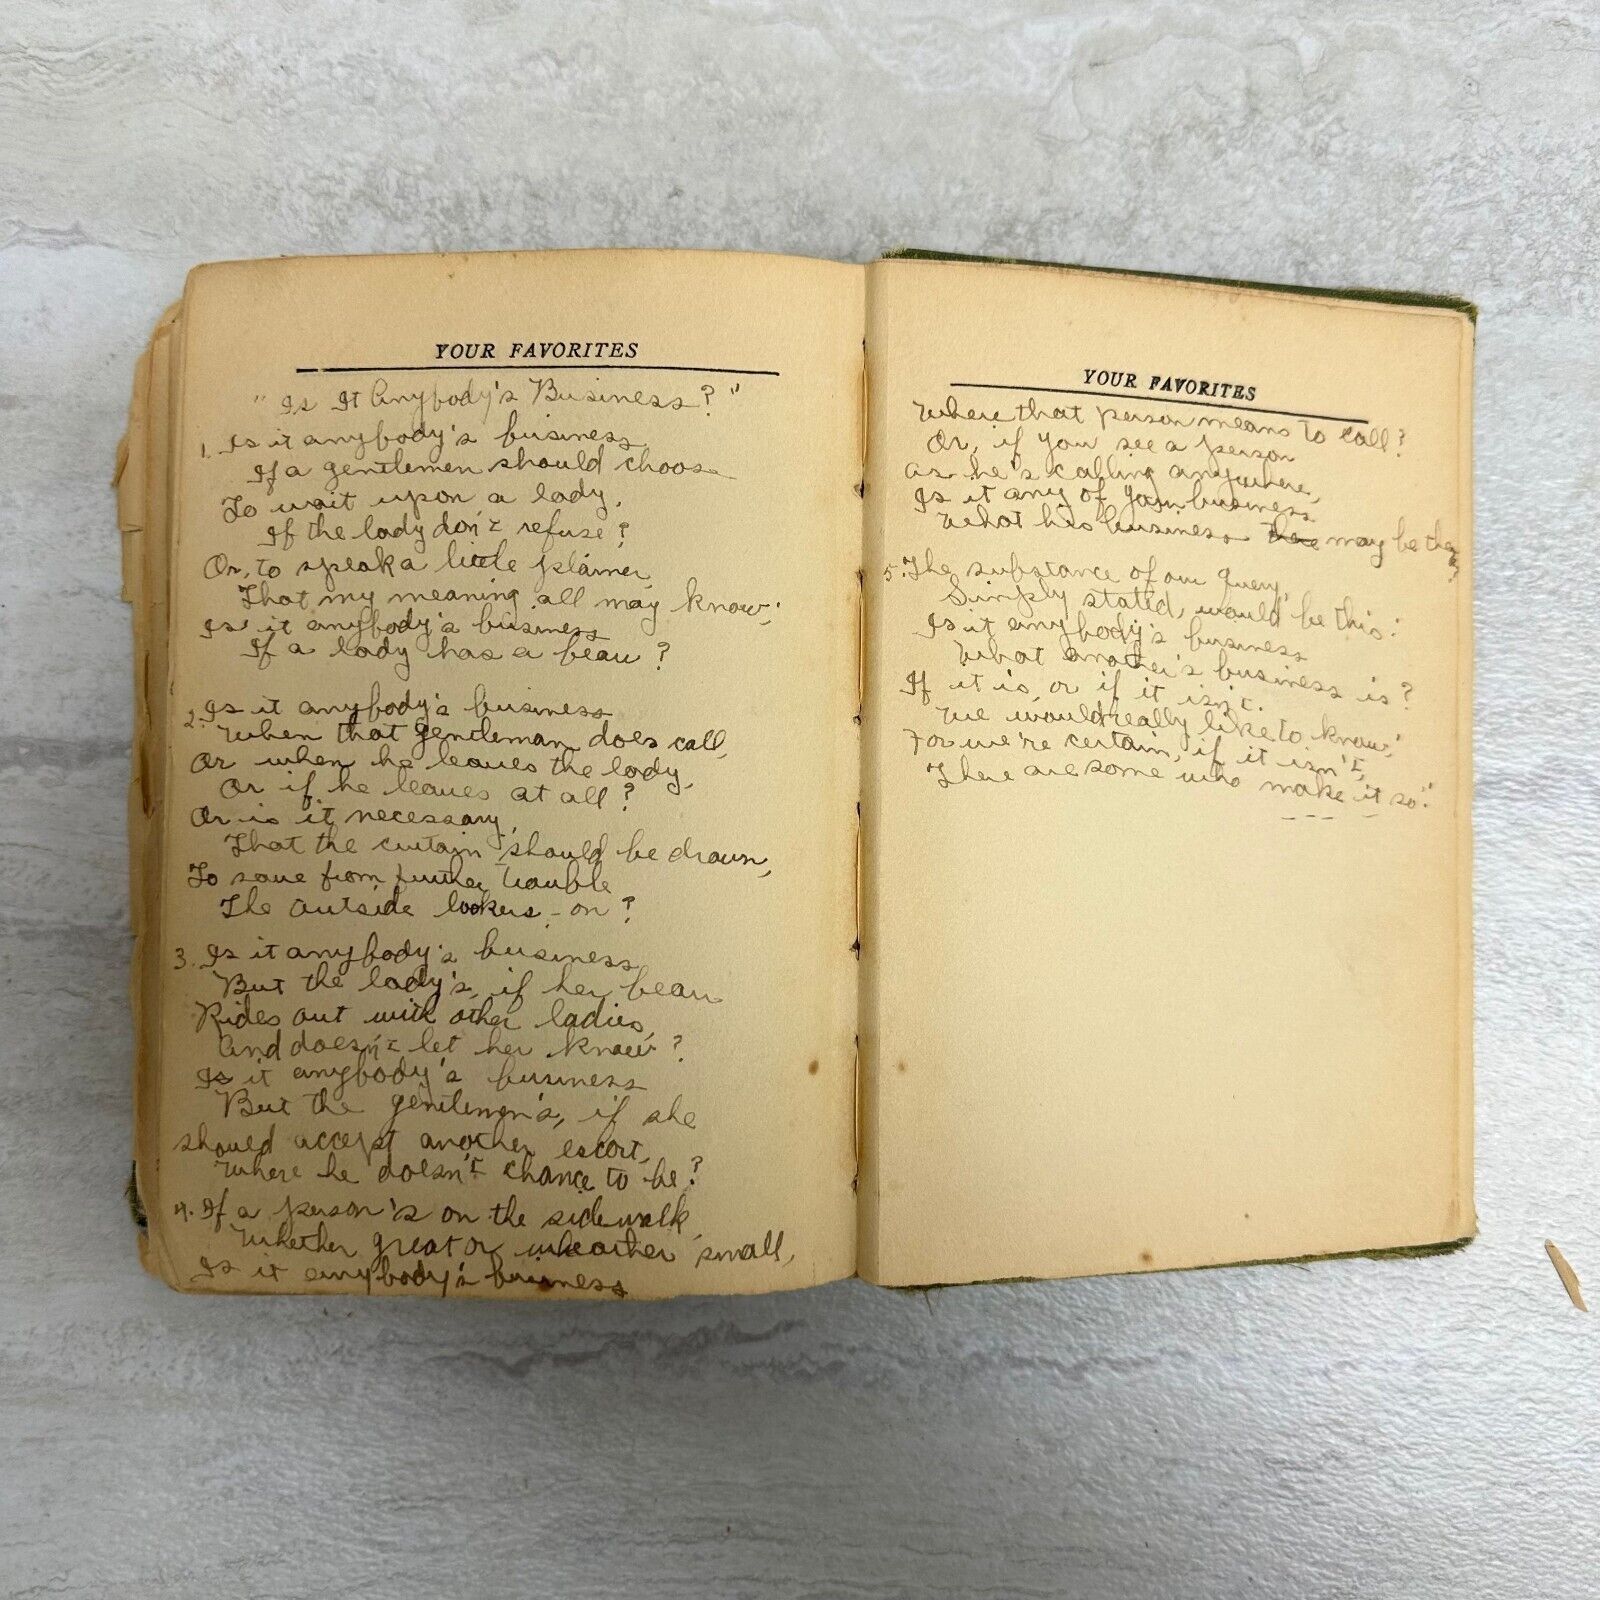 YOUR FAVORITES
"Is It Anybody's Business?"
1. Is it anybody's business
If a gentlemen should choose
To wait upon a lady,
If the lady don't refuse?
Or, to speak a little plainer,
That my meaning all may know;
Is it anybody's business
If a lady has a beau?
2. Is it anybody's business
When that gentleman does call,
Or when he leaves the lady,
Or if he leaves at all?
Or is it necessary,
That the curtain should be drawn,
To save from further trouble
The outside lookers-on?
3. Is it anybody's business
But the lady's, if her beau
Rides out with other ladies,
And doesn't let her know?
Is it anybody's business
But the gentlemen's, if she
should accept another escort,
Where he doesn't chance to be?
4. If a person's on the sidewalk,
Whether great or wheather small,
Is it anybody's business
YOUR FAVORITES
Where that person means to call?
Or, if you see a person
as he's calling anywhere,
Is it any of your business
What his business there may be there?
5. The substance of our query,
Simply stated, would be this:
Is it anybody's business
What another's business is?
If it is, or if it isn't.
We would really like to know;
For we're certain, if it isn't,
There are some who make it so."